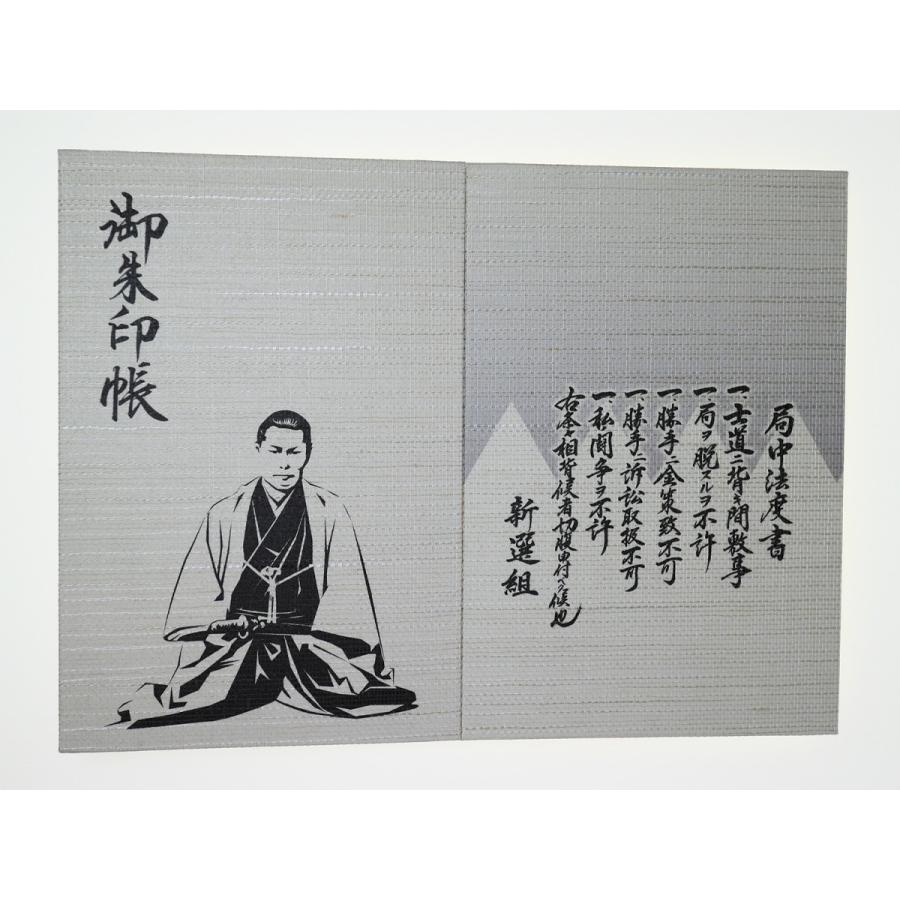 御朱印帳
局中法度書
一、士道ニ背キ間敷事
一、局ヲ脱スルヲ不許
一、勝手ニ金策致不可
一、勝手ニ訴訟取扱不可
一、私闘争ヲ不許
右条々相背候者切腹申付ベク候也
新選組